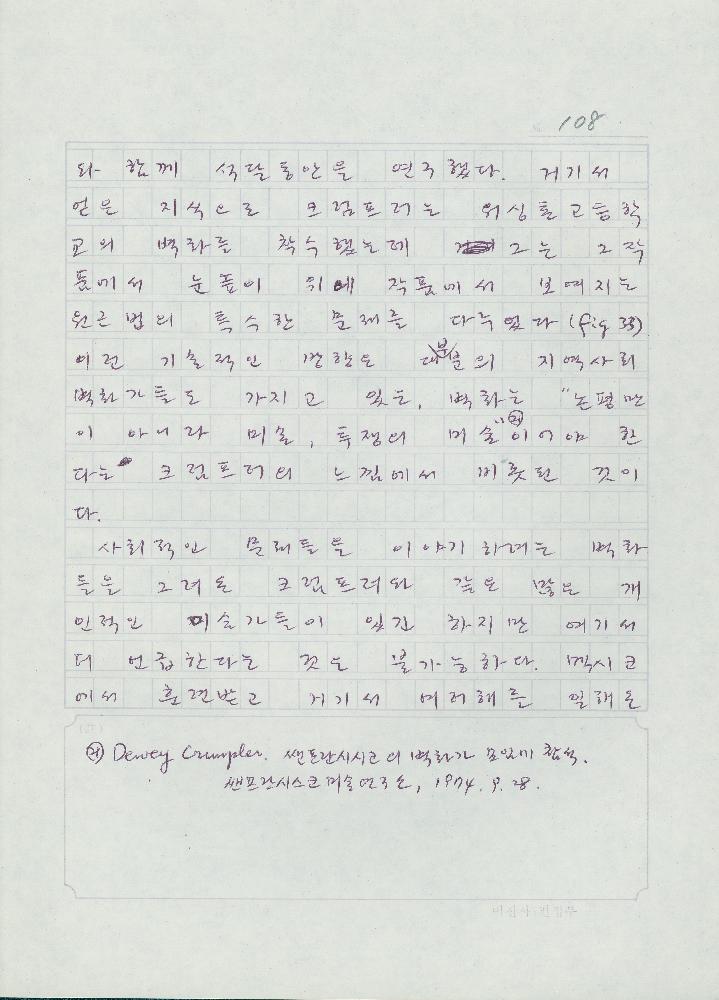 108
와 함께 석달동안을 연구했다. 거기서
얻은 지식으로 크럼프러는 워싱톤고등학
교의 벽화를 착수했는데 그는 그 작
품에서 눈높이 위에 작품에서 보여지는
원근법의 특수한 문제를 다루었다 (fig 33)
이런 기술적인 방향은 대부분의 지역사회
벽화가들도 가지고 있는, 벽화는 "논평만
이 아니라 미술, 투쟁의 미술"㉑이어야 한
다는 크럼프러의 느낌에서 비롯된 것이
다.
사회적인 문제들을 이야기하려는 벽화
들을 그려온 크럼프러와 같은 많은 개
인적인 미술가들이 있긴 하지만 여기서
더 언급한다는 것은 불가능하다. 멕시코
에서 훈련받고 거기서 여러해를 일해온
㉑ Dewey Crumpler. 쌘프란시시코의 벽화가 모임에 참석.
쌘프란시스코미술연구소, 1974. 9. 28.